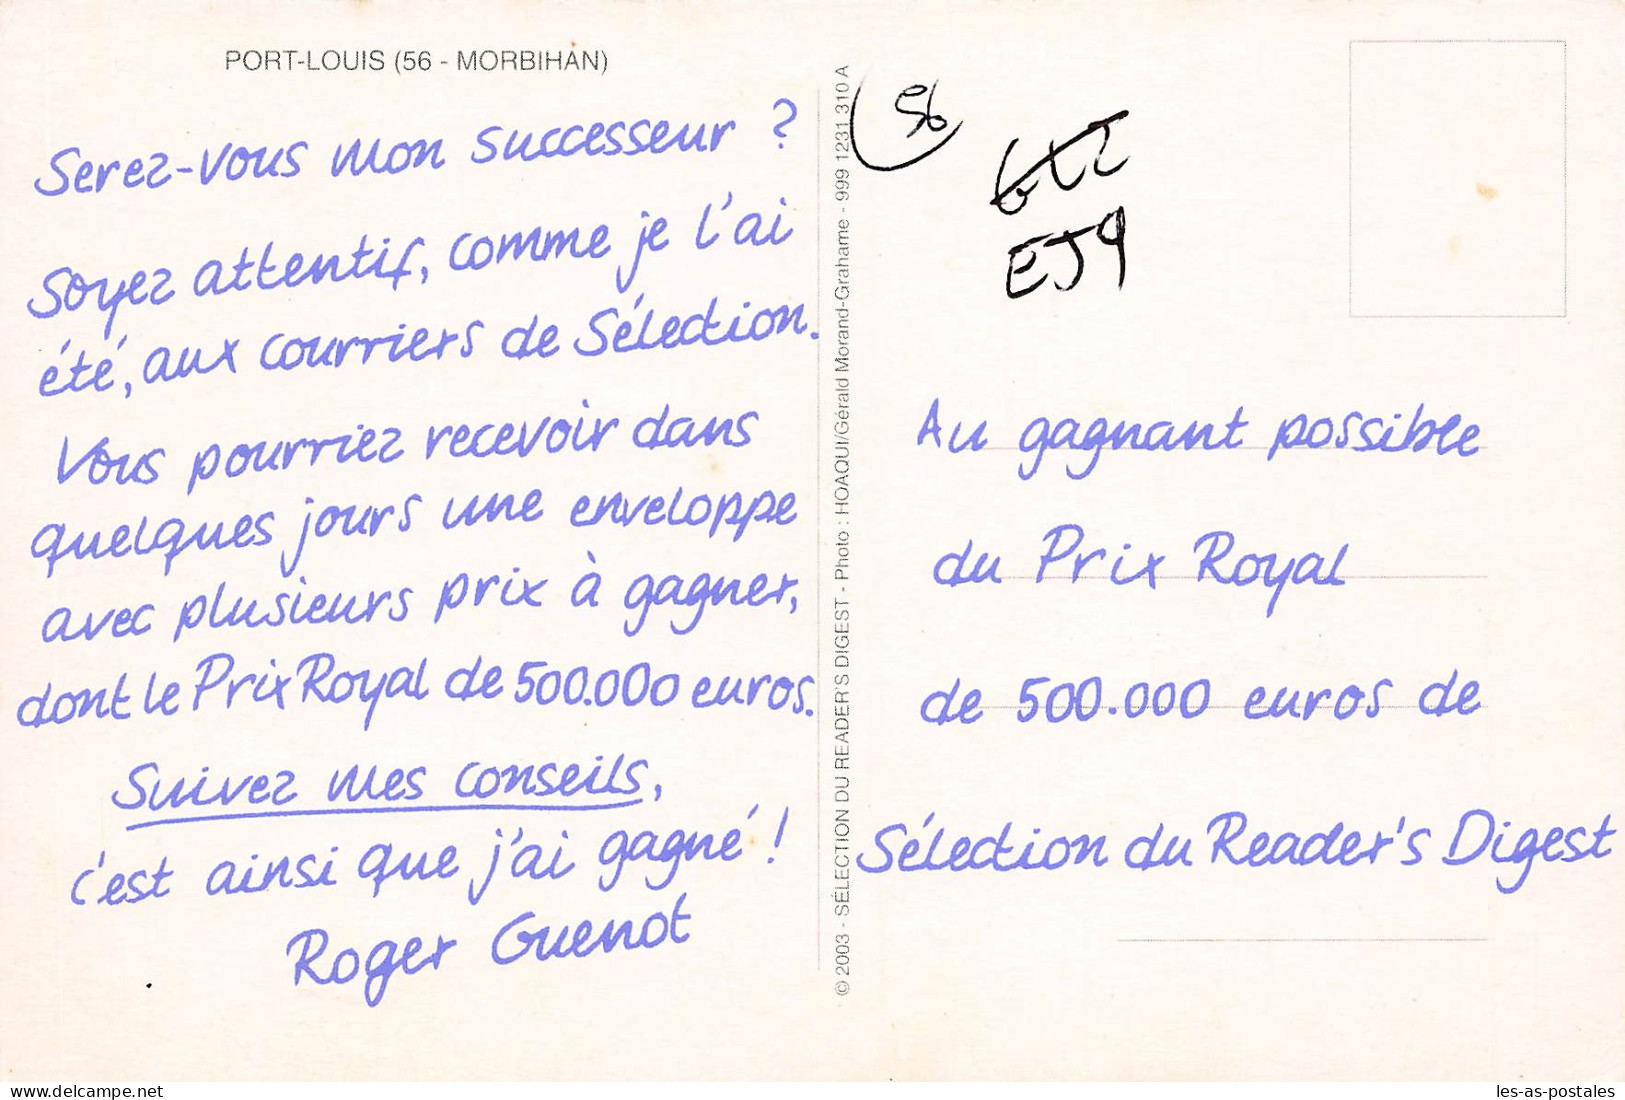 PORT-LOUIS (56 - MORBIHAN)
Serez-vous mon successeur ?
Soyez attentif, comme je l'ai
été, aux courriers de Sélection.
Vous pourriez recevoir dans
quelques jours une enveloppe
avec plusieurs prix à gagner,
dont le Prix Royal de 500.000 euros.
Suivez mes conseils,
c'est ainsi que j'ai gagné !
Roger Guenot
© 2003 - SÉLECTION DU READER'S DIGEST - Photo : HOAQUI/Gérald Morand-Grahame - 999 1231 310 A
56
EJ9
Au gagnant possible
du Prix Royal
de 500.000 euros de
Sélection du Reader's Digest
les-as-postales